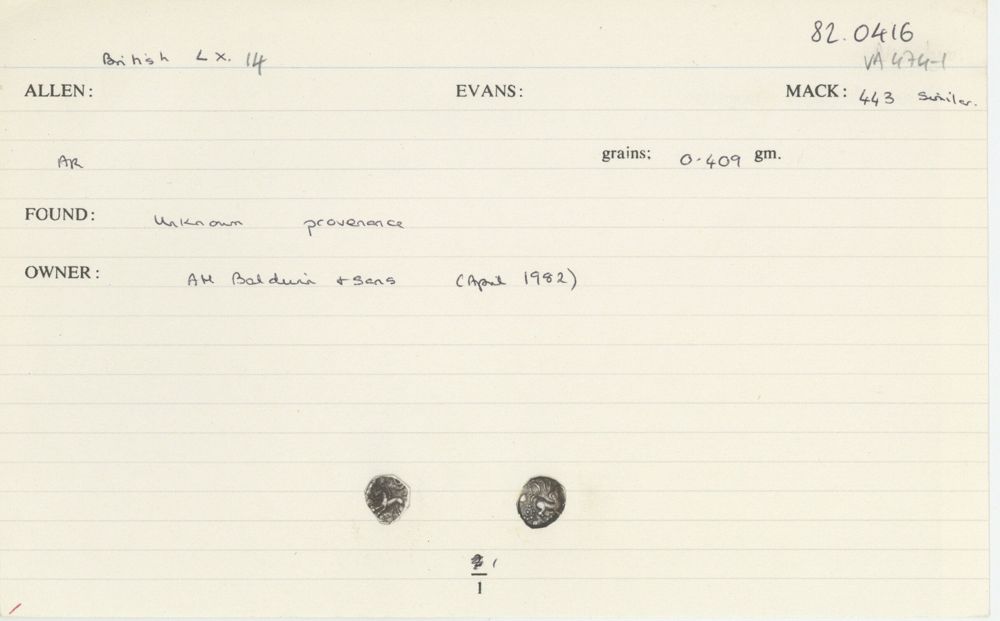 82.0416
British LX. 14 VA 474-1
ALLEN: EVANS: MACK: 443 Similar.
AR grains; 0.409 gm.
FOUND: Unknown provenance
OWNER: AH Baldwin + Sons (April 1982)
1
1